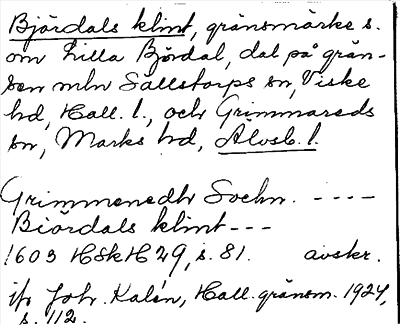 Björdals klint, gränsmärke s.
om Lilla Björdal, dal på grän-
sen mln Sällstorps sn, Viske
hd, Hall. l., och Grimmareds
sn, Marks hd, Älvsb. l.
Grimmenedtz Sochn. ----
Biördals klint ---
1603 HSkH 29, s. 81. avskr.
jfr Joh. Kalén, Hall. gränsm. 1924,
s. 112.